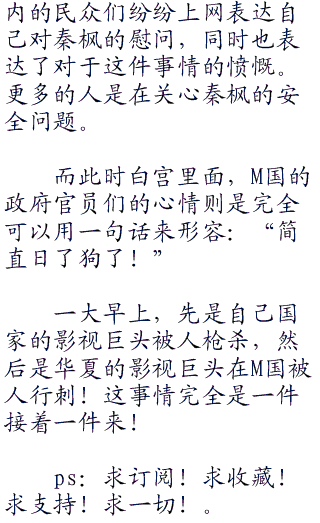 内的民众们纷纷上网表达自
己对秦枫的慰问，同时也表
达了对于这件事情的愤慨。
更多的人是在关心秦枫的安
全问题。
而此时白宫里面，M国的
政府官员们的心情则是完全
可以用一句话来形容：“简
直日了狗了！”
一大早上，先是自己国
家的影视巨头被人枪杀，然
后是华夏的影视巨头在M国被
人行刺！这事情完全是一件
接着一件来！
ps：求订阅！求收藏！
求支持！求一切！。